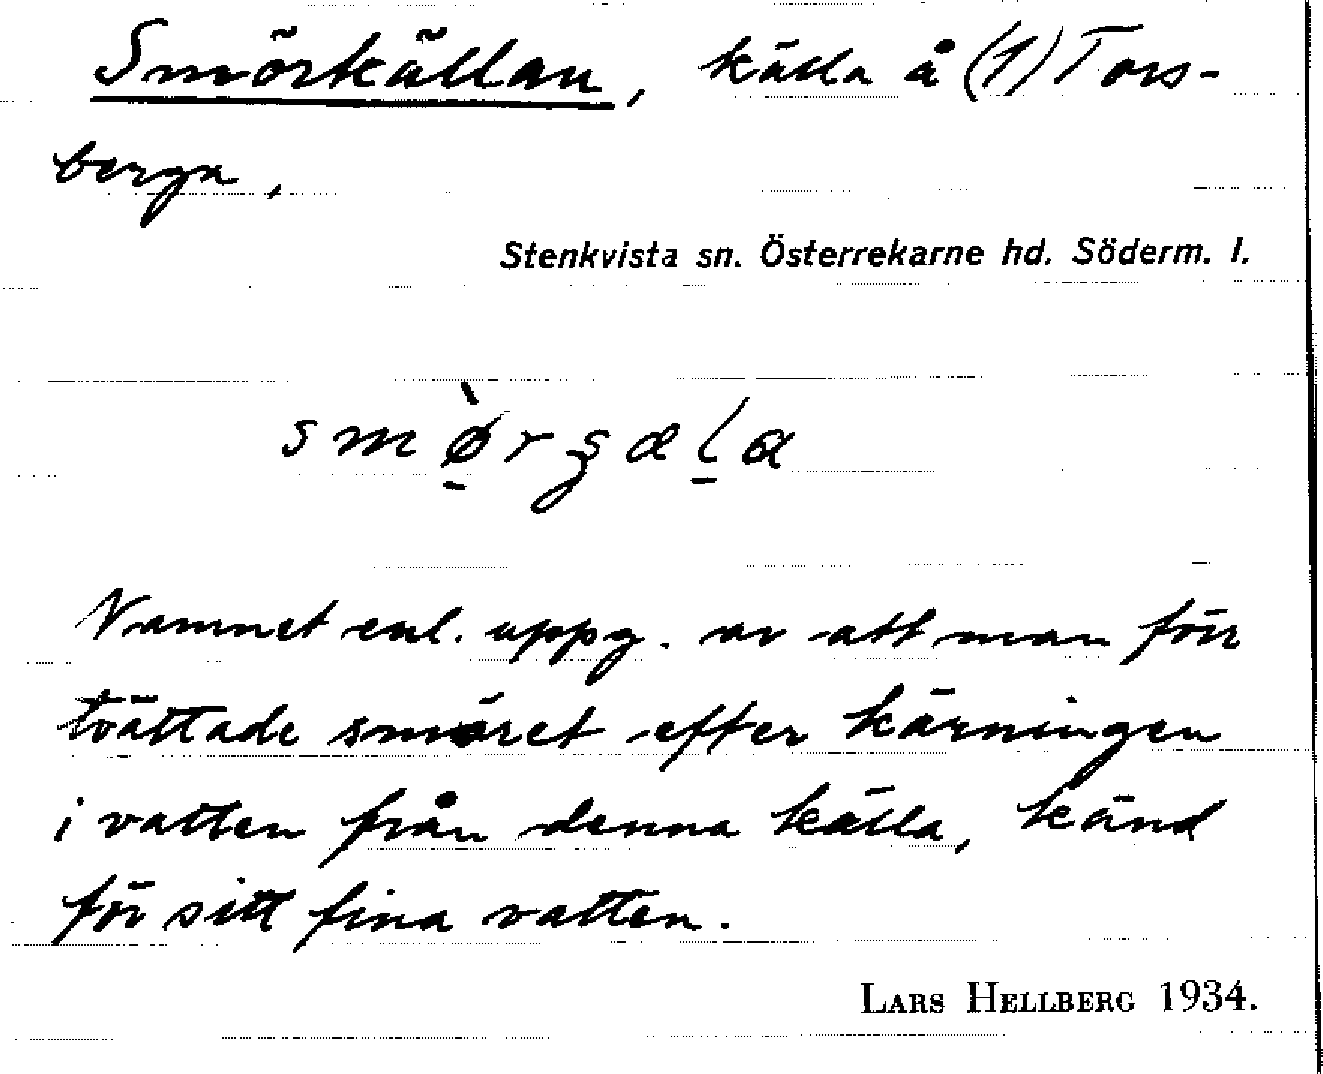 Smörkällan, källa å (1) Tors-
berga,
Stenkvista sn. Österrekarne hd. Söderm. l.
Namnet enl. uppg. av att man förr
tvättade smöret efter kärningen
i vatten från denna källa, känd
för sitt fina vatten.
LARS HELLBERG 1934.